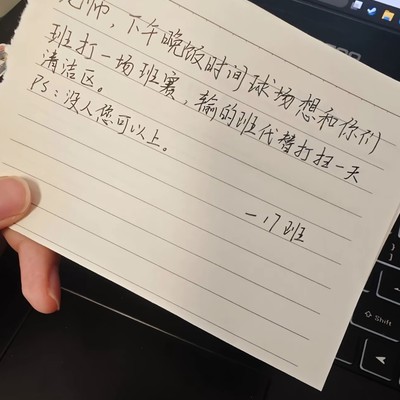 老师，下午晚饭时间球场想和你们
班打一场班赛，输的班代替打扫一天
清洁区。
PS：没人您可以上。
一17班
Shift